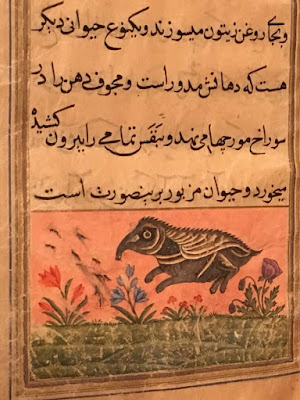 و بجای روغن زیتون میسوزند و یکنوع حیوانی دیگر
هست که دهانش مدور است و مجوف دهن را در
سوراخ مورچها می نهد و بنفس تمامے را بیرون کشیده
میخورد و حیوان مزبور برینصورت است